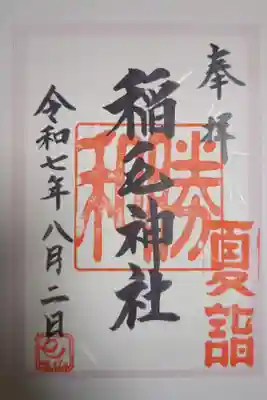 奉拝
稲毛神社
勝利
夏詣
令和七年八月二日